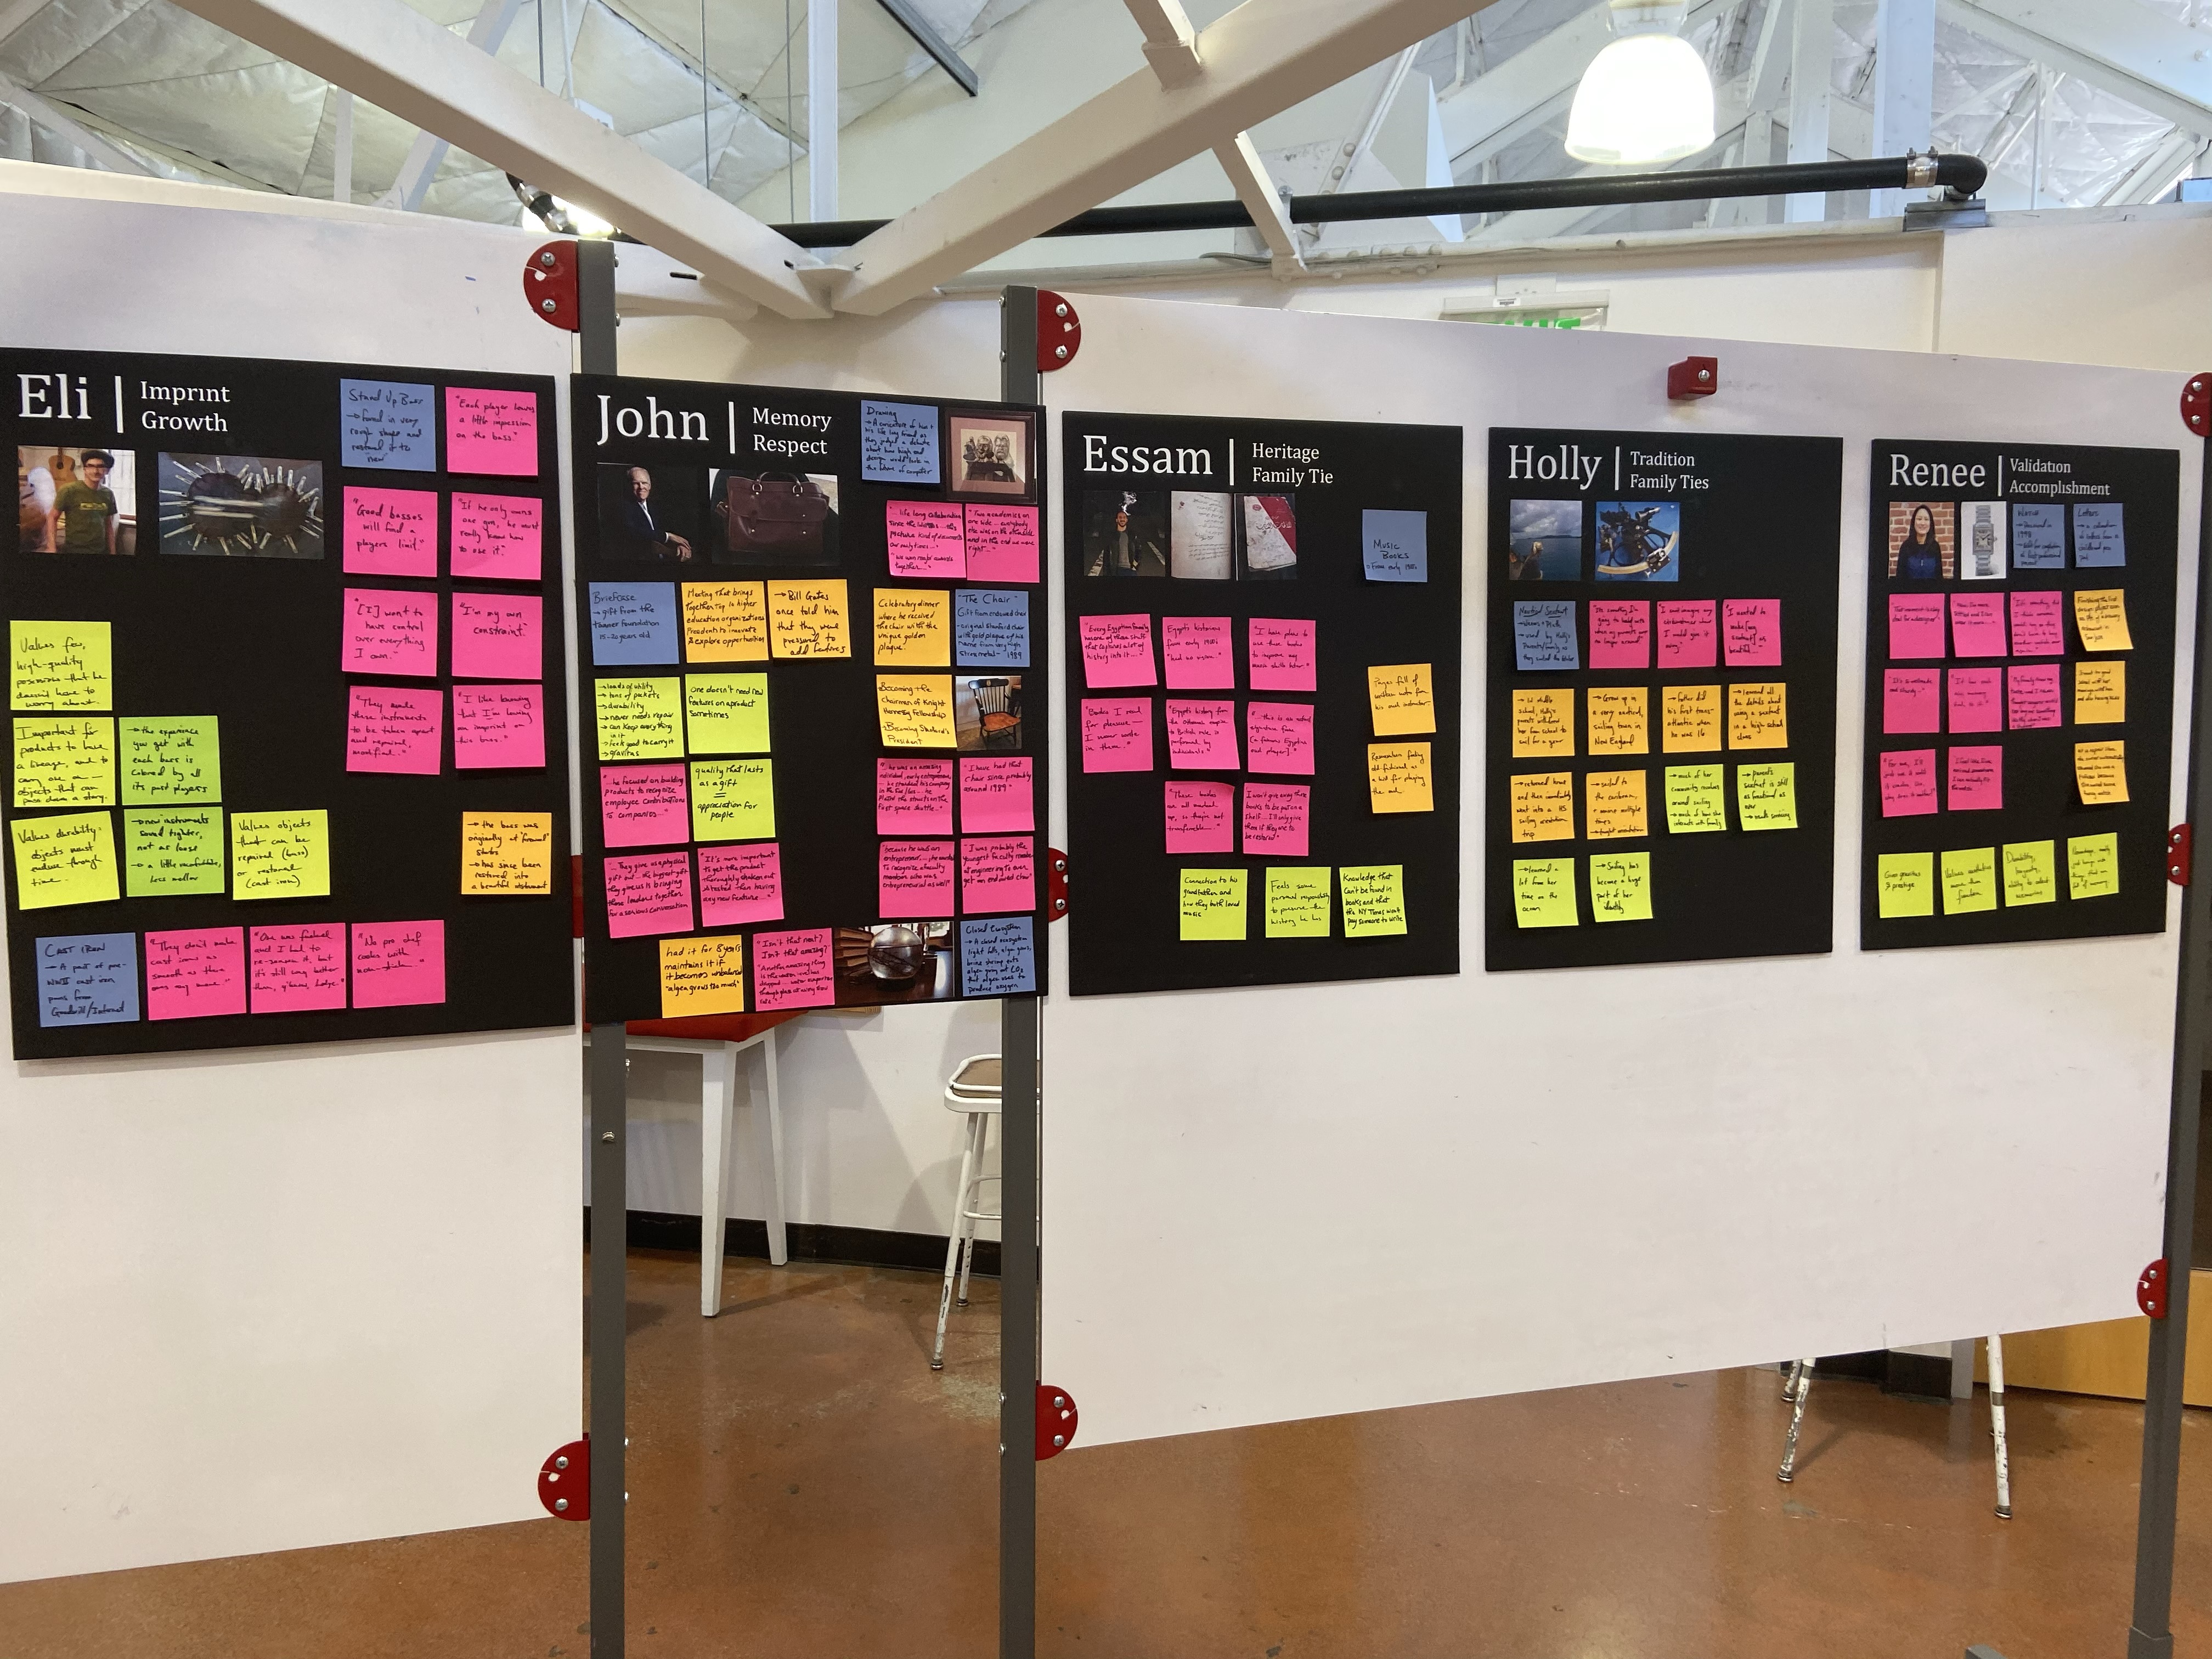 Eli
Imprint
Growth
Stand Up Bass
→ found in very
rough shape and
restored it to
new
"Each player leaves
a little impression
on the bass."
"Good basses
will find a
players limit."
"If he only owns
one gun, he must
really know how
to use it."
"[I] want to
have control
over everything
I own."
"I'm my own
constraint."
"They made
these instruments
to be taken apart
and repaired,
modified."
"I like knowing
that I'm leaving
an imprint on
this bass."
Values few,
high-quality
possessions that he
doesn't have to
worry about.
Important for
products to have
a lineage, and to
carry one on —
objects that can
pass down a story.
→ the experience
you get with
each bass is
colored by all
its past players
Values durability:
objects must
endure through
time.
→ new instruments
sound tighter,
not as loose
→ a little uncomfortable,
less mellow
Values objects
that can be
repaired (bass)
or restored
(cast iron)
→ the bass was
originally at "firewood"
status
→ has since been
restored into
a beautiful instrument
CAST IRON
→ A part of pre-
WWII cast iron
pans from
Goodwill/Internet
"They don't make
cast irons as
smooth as these
ones any more."
"One was fucked
and I had to
re-season it, but
it's still way better
than, y'know, Lodge."
"No pro chef
cooks with
non-stick."
John
Memory
Respect
Drawing
→ A caricature of him &
his life long friend as
they judged a debate
about how high end
design would look in
the future of computer
"...life long collaboration
since the
pictures kind of documents
our early times...
"we won major awards
together..."
"Two academics on
one side... everybody
else was on the other side
and in the end we were
right..."
Briefcase
→ gift from the
Foundation
15-20 years old
Meeting that brings
together top in higher
education organizations
Presidents to innovate
& explore opportunities
→ Bill Gates
once told him
that they were
pressured to
add features
Celebratory dinner
where he received
the chair with the
unique golden
plaque.
"The Chair"
Gift from endowed chair
- original Stanford chair
with gold plaque of his
name from very high
- 1989
→ loads of utility
→ tons of pockets
→ durability
→ never needs repair
→ can keep everything
in it
→ feels good to carry it
→ gravitas
One doesn't need new
features on a product
sometimes
Becoming the
chairman of Knight
Hennessy Fellowship
Becoming Stanford's
President
"...he focused on building
products to recognize
employee contributions
to companies..."
quality that lasts
as a gift
=
appreciation for
people
"...he was an amazing
individual, early entrepreneur,
he started his company
in the 50s/60s... he
the struts on the
first space shuttle."
"I have had that
chair since probably
around 1989"
"...They give us a physical
gift but... the biggest gift
they give us is bringing
these leaders together
for a serious conversation
"It's more important
to get the product
thoroughly shaken out
& tested than having
any new feature..."
"because he was an
entrepreneur... he wanted
to recognize a faculty
member who was
entrepreneurial as well"
"I was probably the
youngest faculty member
of engineering to ever
get an endowed chair"
had it for 8 years
maintains it if
it becomes unbalanced
"algea grows too much"
"Isn't that neat?
Isn't that amazing?"
Closed Ecosystem
→ A closed ecosystem
light falls, algea grows,
brine shrimp eats
algea giving out CO2
that algea uses to
produce oxygen
Essam
Heritage
Family Tie
Music
Books
→ From early 1900s
"Every Egyptian family
has one of these stuff
that captures a lot of
history into it..."
Egypt's historians
from early 1900s
"had no vision."
"I have plans to
use these books
to improve my
music skills better."
"Books I read
for pleasure —
I never wrote
in them..."
"Egypt's history from
the Ottoman empire
to British rule is
performed, by
individuals"
"...this is an actual
signature from
[a famous Egyptian
oud player]."
Pages full of
written notes from
his oud instructor.
Remembers feeling
old-fashioned as
a kid for playing
the oud.
"These books
are all marked
up, so they're not
transferrable..."
I won't give away these
books to be put on a
shelf... I'll only give
them if they are to
be restored"
Connection to his
grandfather and
how they both loved
music
Feels some
personal responsibility
to preserve the
history he has
Knowledge that
can't be found in
books and that
the NY Times won't
pay someone to write
Holly
Tradition
Family Ties
Nautical Sextant
→ used by Holly's
Parents/family as
they sailed the
"It's something I'm
going to hold onto
when my parents are
no longer around"
"I can't imagine any
circumstances where
I would give it
away."
"I wanted to
make [my
sextant] as
beautiful..."
→ In middle
school, Holly's
parents withdrew
her from school to
sail for a year
→ Grew up in
a very nautical,
sailing town in
New England
→ father did
his first trans-
atlantic when
he was 16
→ learned all
the details about
using a sextant
in a high-school
class
→ returned home
and then immediately
went into a HS
sailing orientation
trip
→ sailed to
the caribbean,
a marine multiple
times
→ taught orientation
→ much of her
community revolves
around sailing
→ much of how she
interacts with family
→ parent's
sextant is still
as functional as
now
→ needs servicing
→ learned a
lot from her
time on the
ocean
→ Sailing has
become a huge
part of her
identity
Renee
Validation
Accomplishment
Watch
→ Purchased in
1998
Letters
→ a collection
of letters from a
childhood pen
pal
"It's timeless
and sturdy."
Gives gravitas
& prestige
Values aesthetics
more than
function